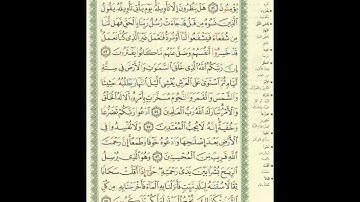 يُؤْمِنُونَ ۝٥٢ هَلْ يَنظُرُونَ إِلَّا تَأْوِيلَهُۥ يَوْمَ يَأْتِى تَأْوِيلُهُۥ يَقُولُ
ٱلَّذِينَ نَسُوهُ مِن قَبْلُ قَدْ جَآءَتْ رُسُلُ رَبِّنَا بِٱلْحَقِّ فَهَل لَّنَا
مِن شُفَعَآءَ فَيَشْفَعُوا۟ لَنَآ أَوْ نُرَدُّ فَنَعْمَلَ غَيْرَ ٱلَّذِى كُنَّا نَعْمَلُ
قَدْ خَسِرُوٓا۟ أَنفُسَهُمْ وَضَلَّ عَنْهُم مَّا كَانُوا۟ يَفْتَرُونَ ۝٥٣
إِنَّ رَبَّكُمُ ٱللَّهُ ٱلَّذِى خَلَقَ ٱلسَّمَٰوَٰتِ وَٱلْأَرْضَ فِى سِتَّةِ
أَيَّامٍ ثُمَّ ٱسْتَوَىٰ عَلَى ٱلْعَرْشِ يُغْشِى ٱلَّيْلَ ٱلنَّهَارَ يَطْلُبُهُۥ حَثِيثًا
وَٱلشَّمْسَ وَٱلْقَمَرَ وَٱلنُّجُومَ مُسَخَّرَٰتٍۭ بِأَمْرِهِۦٓ أَلَا لَهُ ٱلْخَلْقُ
وَٱلْأَمْرُ تَبَارَكَ ٱللَّهُ رَبُّ ٱلْعَٰلَمِينَ ۝٥٤ ٱدْعُوا۟ رَبَّكُمْ تَضَرُّعًا
وَخُفْيَةً إِنَّهُۥ لَا يُحِبُّ ٱلْمُعْتَدِينَ ۝٥٥ وَلَا تُفْسِدُوا۟ فِى
ٱلْأَرْضِ بَعْدَ إِصْلَٰحِهَا وَٱدْعُوهُ خَوْفًا وَطَمَعًا إِنَّ رَحْمَتَ
ٱللَّهِ قَرِيبٌ مِّنَ ٱلْمُحْسِنِينَ ۝٥٦ وَهُوَ ٱلَّذِى يُرْسِلُ
ٱلرِّيَٰحَ بُشْرًۢا بَيْنَ يَدَىْ رَحْمَتِهِۦ حَتَّىٰٓ إِذَآ أَقَلَّتْ سَحَابًا
ثِقَالًا سُقْنَٰهُ لِبَلَدٍ مَّيِّتٍ فَأَنزَلْنَا بِهِ ٱلْمَآءَ فَأَخْرَجْنَا بِهِۦ مِن كُلِّ